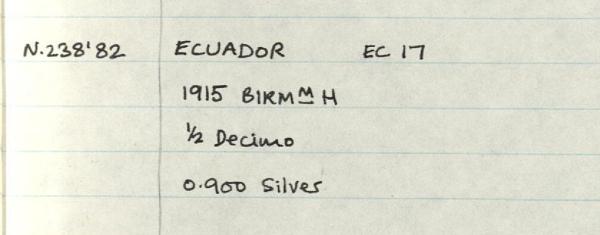 N.238'82 ECUADOR EC 17
1915 BIRMᴹ H
½ Decimo
0.900 Silver